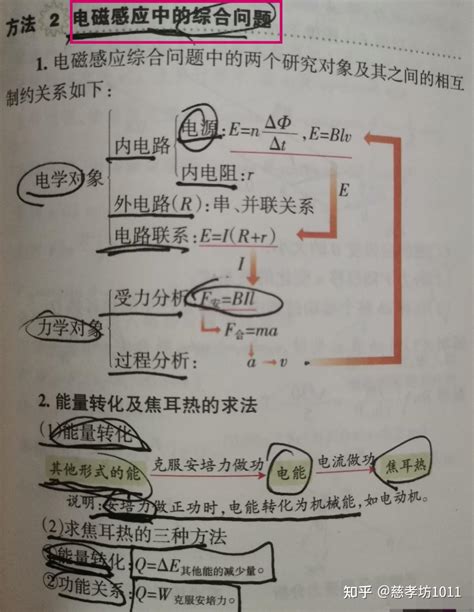 方法 2 电磁感应中的综合问题
1. 电磁感应综合问题中的两个研究对象及其之间的相互
制约关系如下:
电学对象
内电路
电源:E=nΔΦ/Δt,E=Blv
内电阻:r
外电路(R):串、并联关系
电路联系:E=I(R+r)
E
I
力学对象
受力分析:F安=BIl
F合=ma
过程分析: a→v
2. 能量转化及焦耳热的求法
(1)能量转化
其他形式的能 克服安培力做功 电能 电流做功 焦耳热
说明:安培力做正功时,电能转化为机械能,如电动机。
(2)求焦耳热的三种方法
①能量转化:Q=ΔE其他能的减少量。
②功能关系:Q=W克服安培力。
知乎 @慈孝坊1011